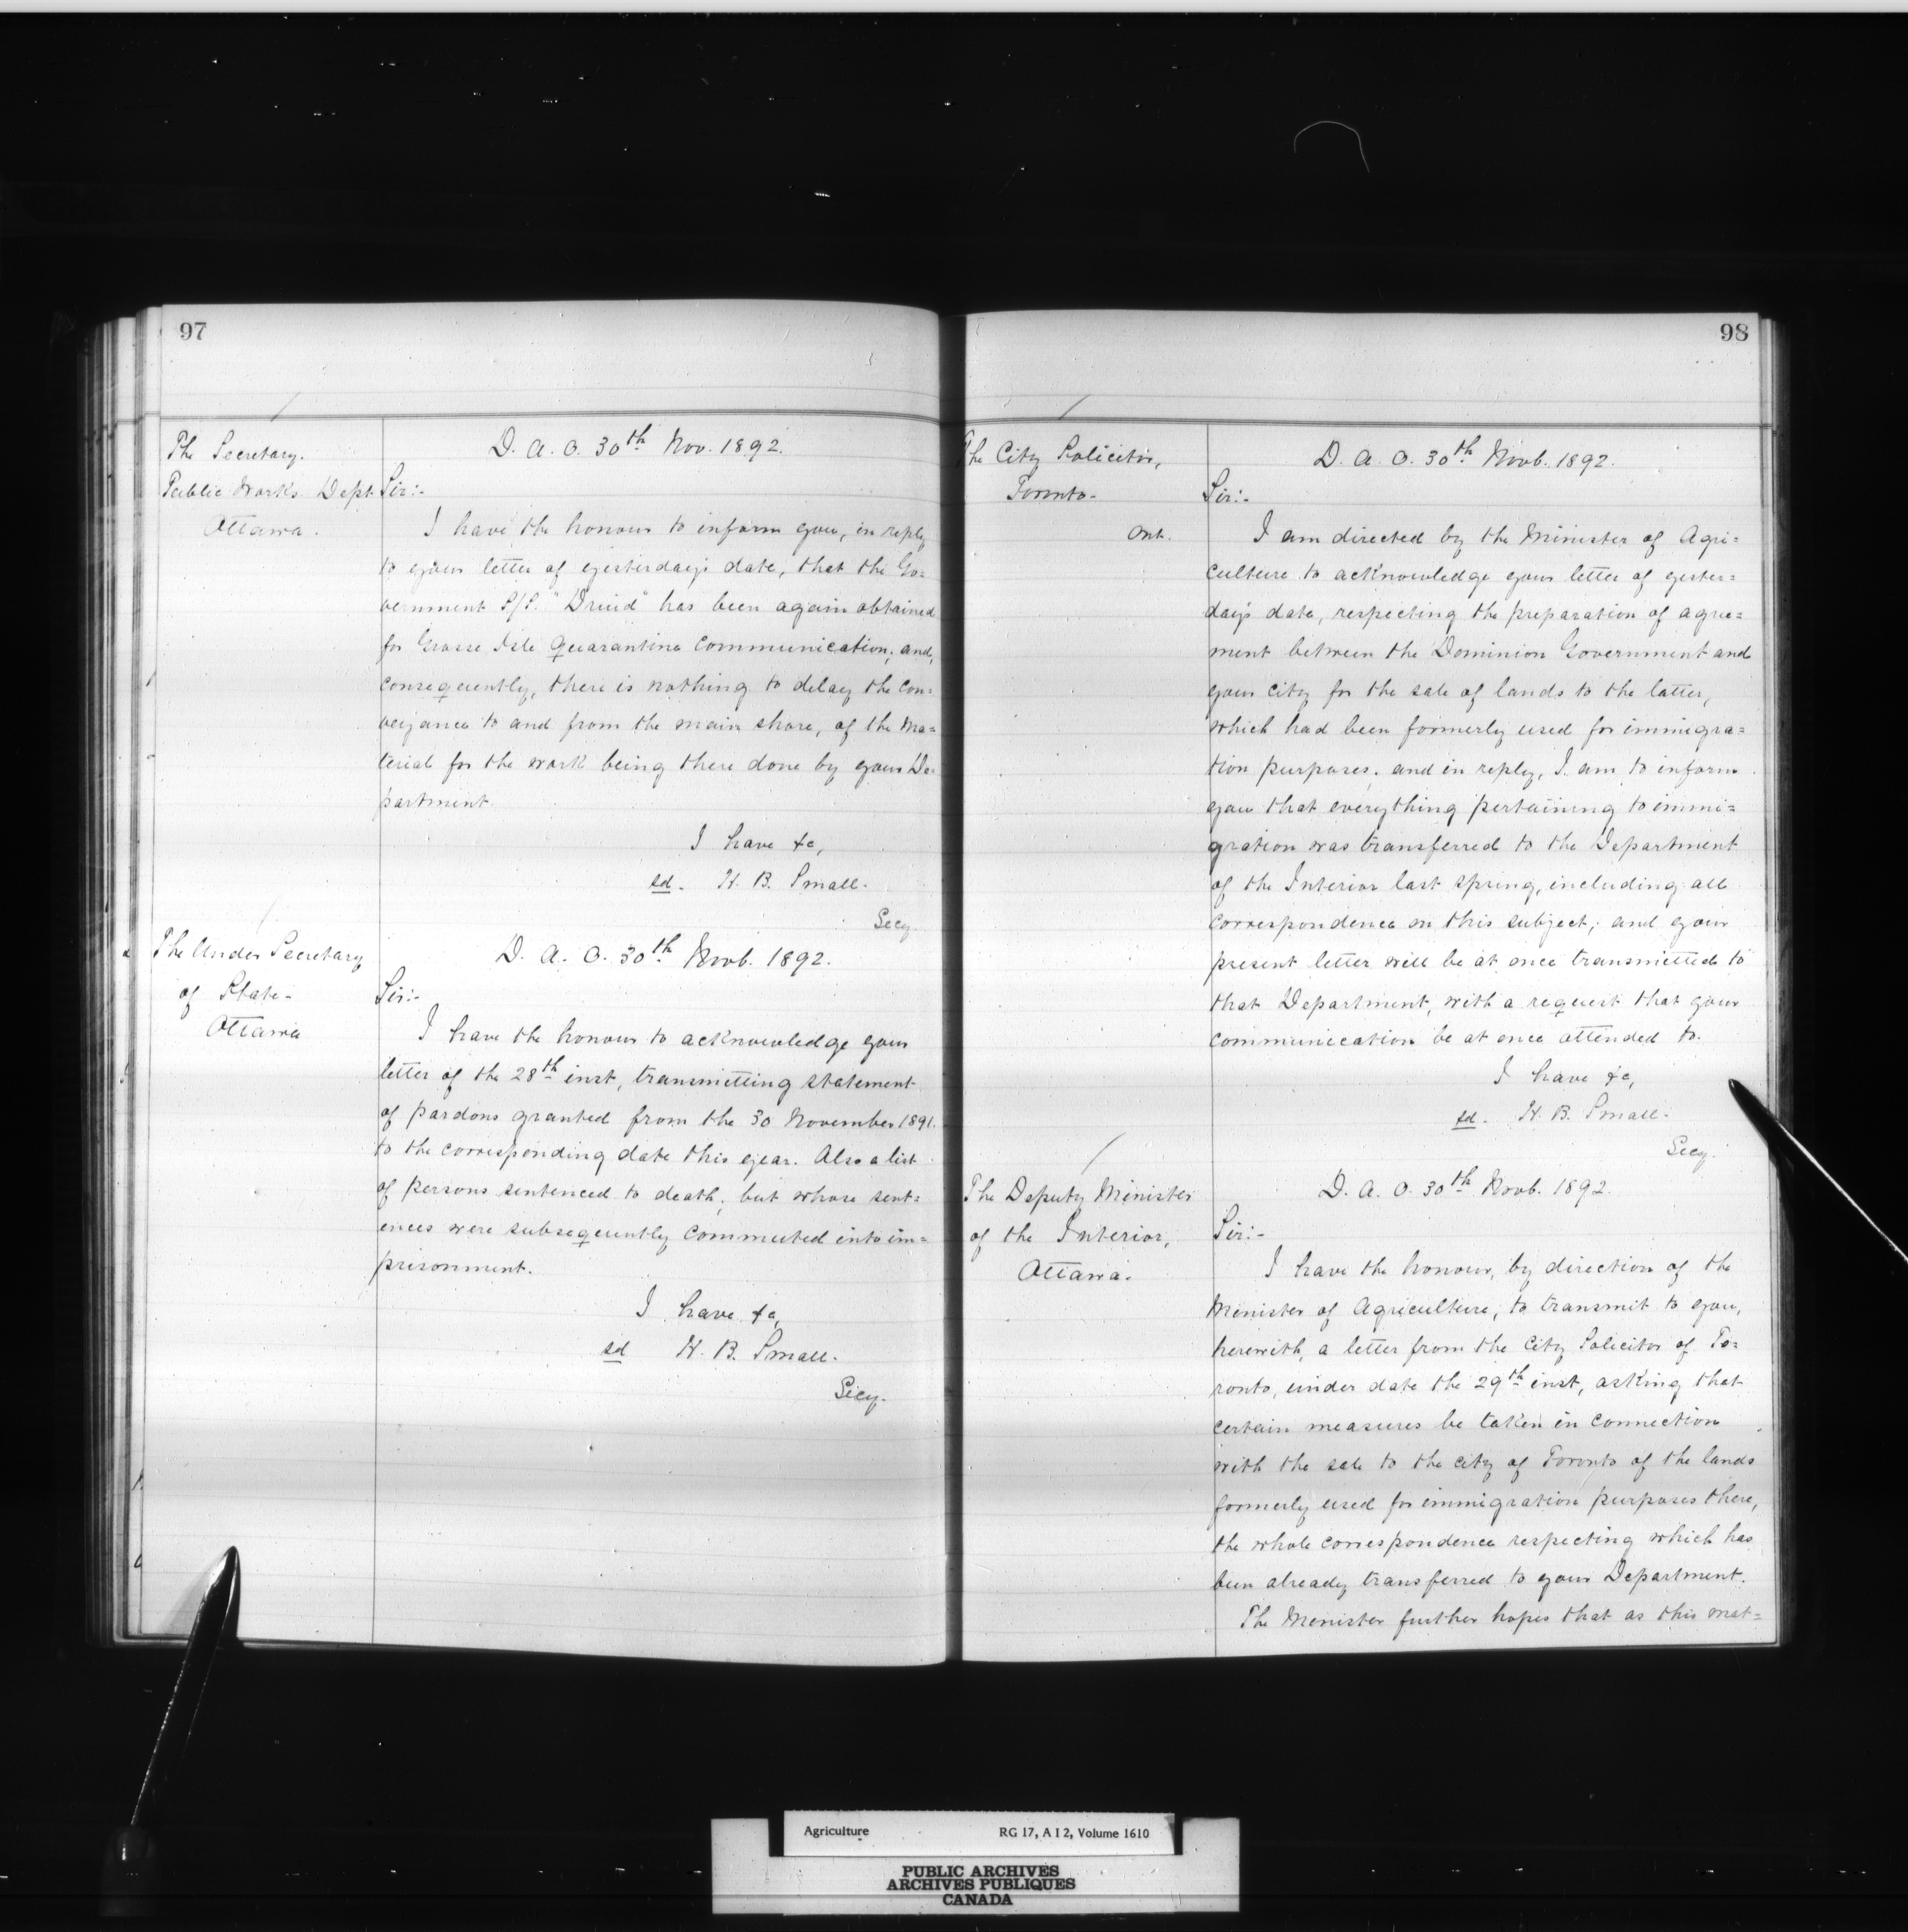 97
The Secretary.
Public Works Dept.
Ottawa.
D. A. O. 30th Nov. 1892.
Sir:-
I have the honour to inform you, in reply
to your letter of yesterday's date, that the Go=
vernment S/S. "Druid" has been again obtained
for Grosse Isle Quarantine communication; and,
consequently, there is nothing to delay the con=
veyance to and from the main shore, of the ma=
terial for the work being there done by your De=
partment.
I have &c,
sd. H. B. Small.
Secy.
The Under Secretary
of State-
Ottawa
D. A. O. 30th Novb. 1892.
Sir:-
I have the honour to acknowledge your
letter of the 28th inst, transmitting statement
of pardons granted from the 30 November 1891.
to the corresponding date this year. Also a list
of persons sentenced to death, but whose sent=
ences were subsequently commuted into im=
prisonment.
I have &c,
sd H. B. Small.
Secy.
98
The City Solicitor,
Toronto-
Ont.
D. A. O. 30th Novb. 1892.
Sir:-
I am directed by the Minister of Agri=
culture to acknowledge your letter of yester=
day's date, respecting the preparation of agree=
ment between the Dominion Government and
your city for the sale of lands to the latter,
which had been formerly used for immigra=
tion purposes. and in reply, I am to inform
you that everything pertaining to immi=
gration was transferred to the Department
of the Interior last spring, including all
correspondence on this subject; and your
present letter will be at once transmitted to
that Department, with a request that your
communication be at once attended to.
I have &c,
sd. H. B. Small.
Secy.
The Deputy Minister
of the Interior,
Ottawa.
D. A. O. 30th Novb. 1892.
Sir:-
I have the honour, by direction of the
Minister of Agriculture, to transmit to you,
herewith, a letter from the City Solicitor of To=
ronto, under date the 29th inst, asking that
certain measures be taken in connection
with the sale to the city of Toronto of the lands
formerly used for immigration purposes there,
the whole correspondence respecting which has
been already transferred to your Department.
The Minister further hopes that as this mat=
Agriculture RG 17, A I 2, Volume 1610
PUBLIC ARCHIVES
ARCHIVES PUBLIQUES
CANADA